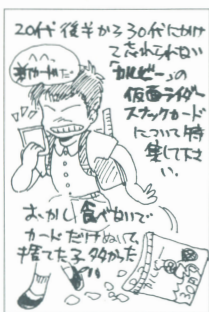 20代後半から30代にかけ
て忘れられない
「カルビー」の
仮面ライダー
スナックカード
について特
集して下さ
い。
おかし食べないで
カードだけぬいて、
捨てた子多かった